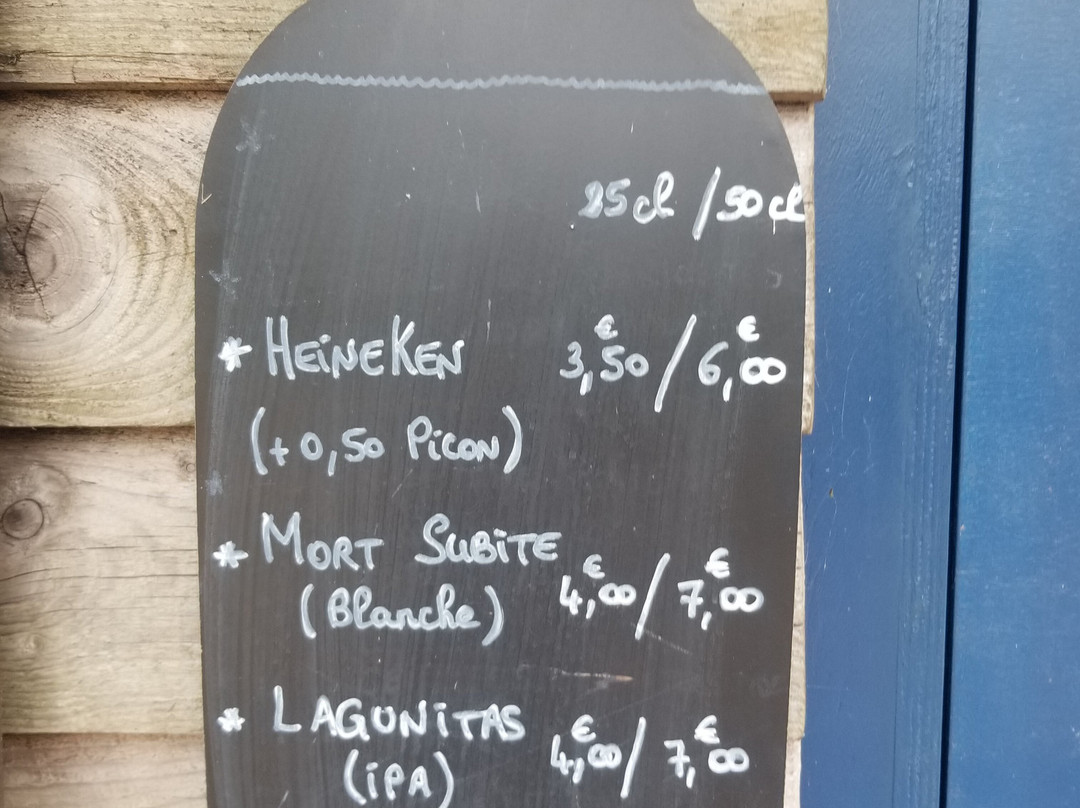 25cl / 50cl
* HEiNEKEN 3,50€ / 6,00€
(+0,50 PiCON)
* MORT SUBiTE
(Blanche) 4,00€ / 7,00€
* LAGUNiTAS 4,00€ / 7,00€
(iPA)